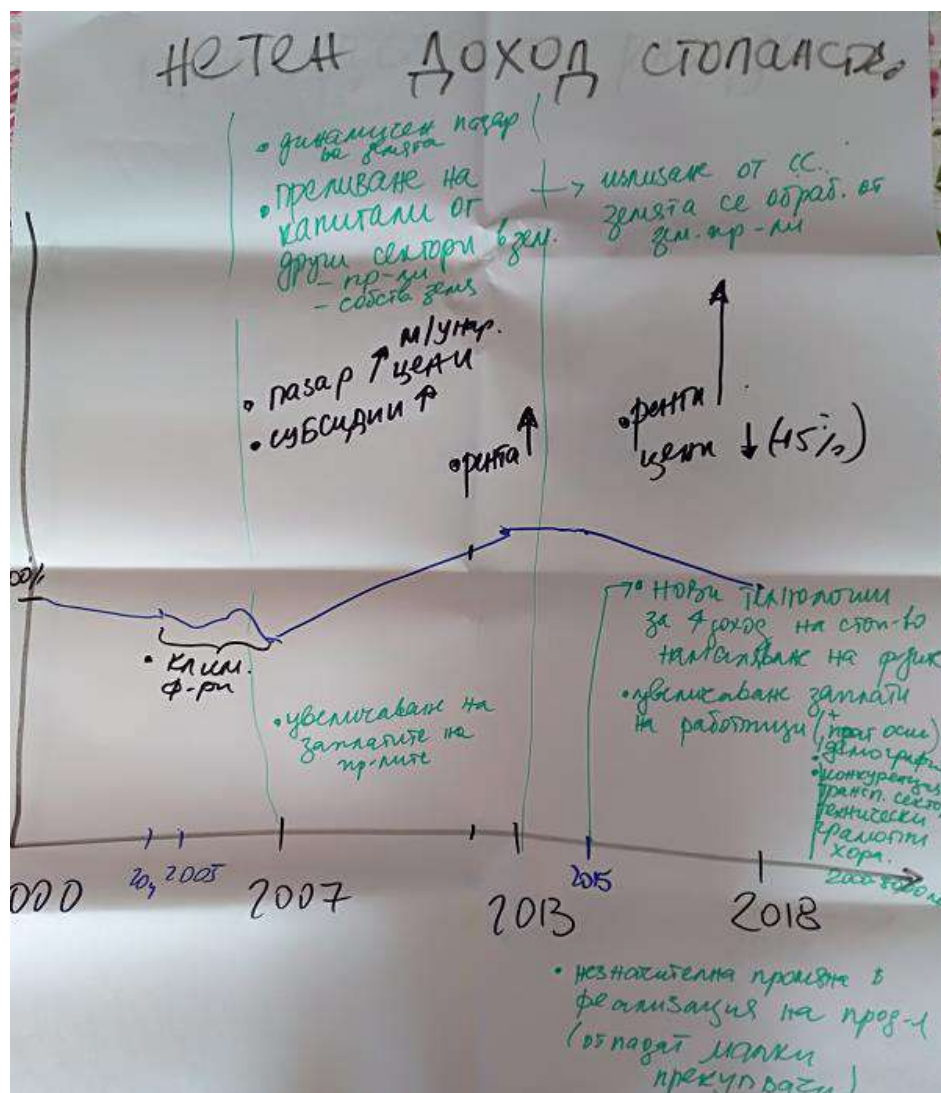 НЕТЕН ДОХОД СТОПАНСТВО
• динамичен пазар
на земята
• преливане на
капитали от
други сектори в зем.
– пр-ли
– собств земя
→ излизане от СС.
земята се обраб. от
зем. пр-ли
• пазар ↑ м/унар.
цени
• субсидии ↑
• рента ↑
• ренти ↑
цени ↓ (15%)
00%
• клим.
ф-ри
• увеличаване на
заплатите на
пр-лите
• нови технологии
за ↑ доход на стоп-во
намаляване на
• увеличаване заплати
на работници (
+
• демографи
• конкуренция
трансп. секто
технически
грамотни
хора.
000
2005
2007
2013
2015
2018
• незначителна промяна в
реализация на прод-
(отпадат малки
прекупвачи)